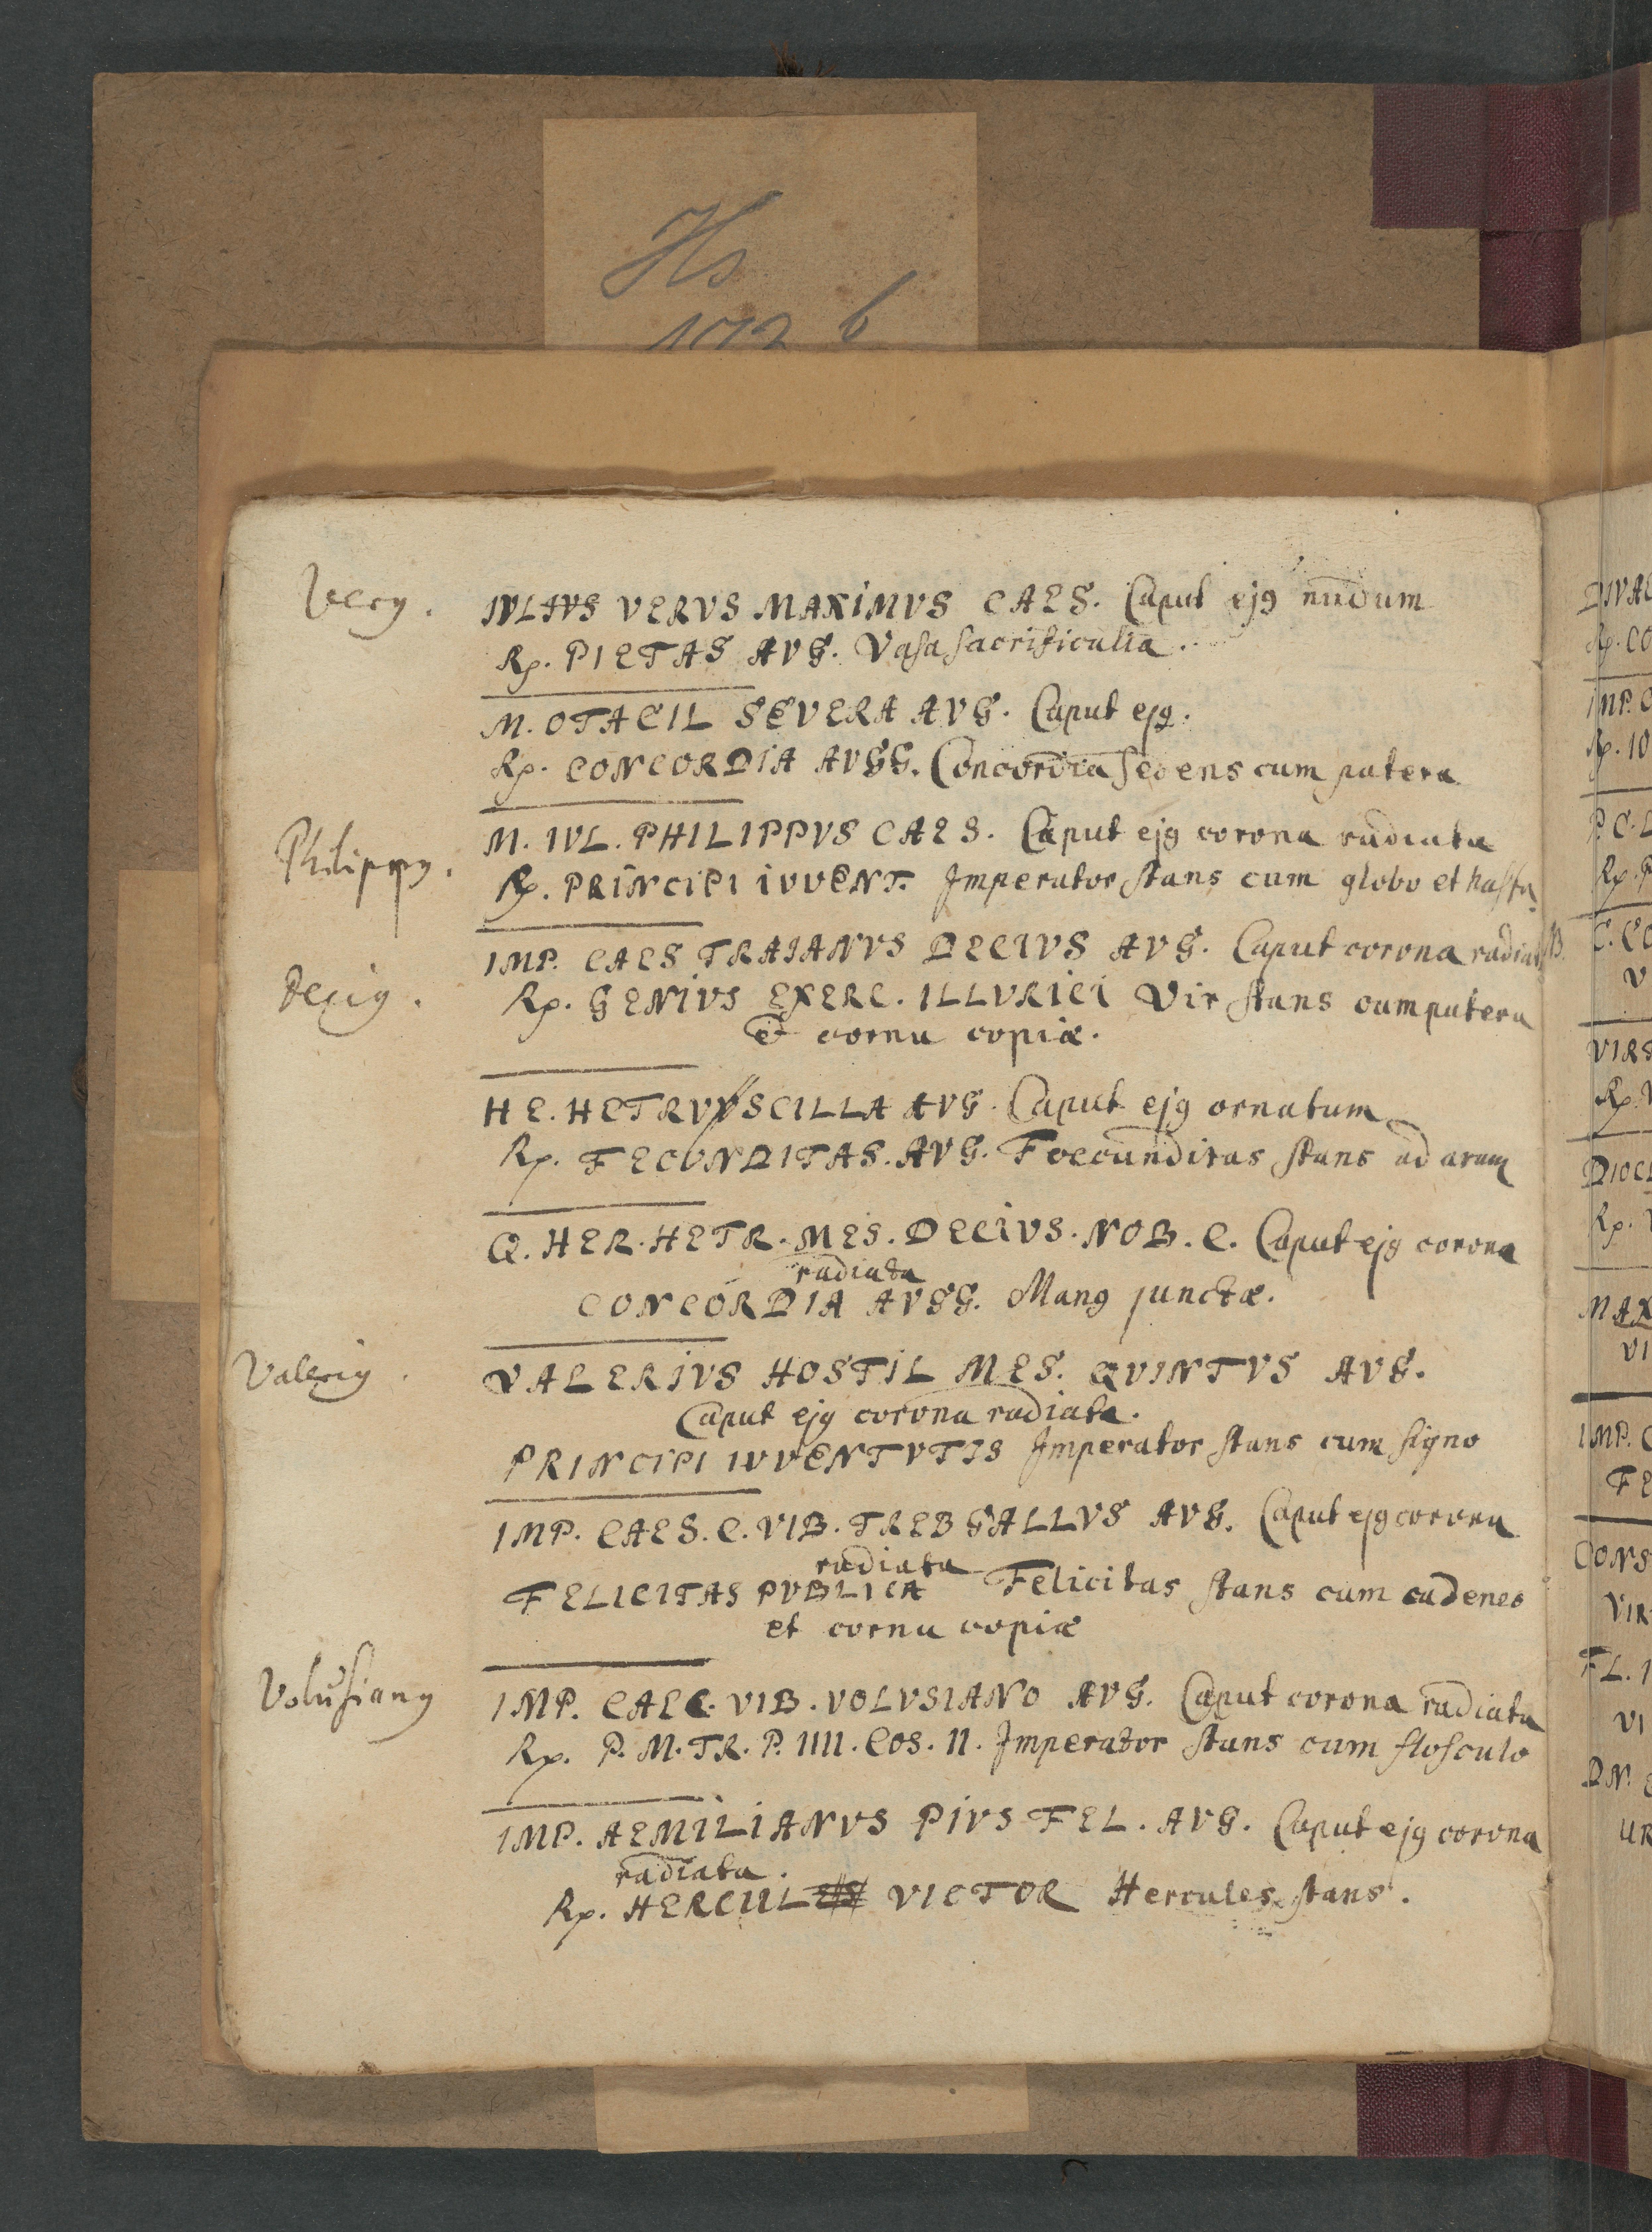 Hs
172 b
Very. IVLIVS VERVS MAXIMVS CAES. Caput ejꝯ nudum
Rp. PIETAS AVG. Vasa sacrificulia.
M. OTACIL SEVERA AVG. Caput ejꝯ.
Rp. CONCORDIA AVGG. Concordia sedens cum patera
Philippꝯ. M. IVL. PHILIPPVS CAES. Caput ejꝯ corona radiata
Rp. PRINCIPI IVVENT. Imperator stans cum globo et hasta
IMP. CAES TRAIANVS DECIVS AVG. Caput corona radiata
Deciꝯ. Rp. GENIVS EXERC. ILLVRICI Vir stans cum patera
& cornu copiæ.
HE. HETRVSCILLA AVG. Caput ejꝯ ornatum
Rp. FECVNDITAS. AVG. Foecunditas stans ad aram
Q. HER. HETR. MES. DECIVS. NOB. C. Caput ejꝯ corona
radiata
CONCORDIA AVGG. Manꝯ junctæ.
Valeriꝯ. VALERIVS HOSTIL MES. QVINTVS AVG.
Caput ejꝯ corona radiata.
PRINCIPI IVVENTVTIS Imperator stans cum signo
IMP. CAES. C. VIB. TREB GALLVS AVG. Caput ejꝯ corona
radiata
FELICITAS PVBLICA Felicitas stans cum caduceo
et cornu copiæ
Volusianꝯ IMP. CAE C. VIB. VOLVSIANO AVG. Caput corona radiata
Rp. P. M. TR. P. IIII. COS. II. Imperator stans cum flosculo
IMP. AEMILIANVS PIVS FEL. AVG. Caput ejꝯ corona
radiata.
Rp. HERCUL VICTOR Hercules stans.